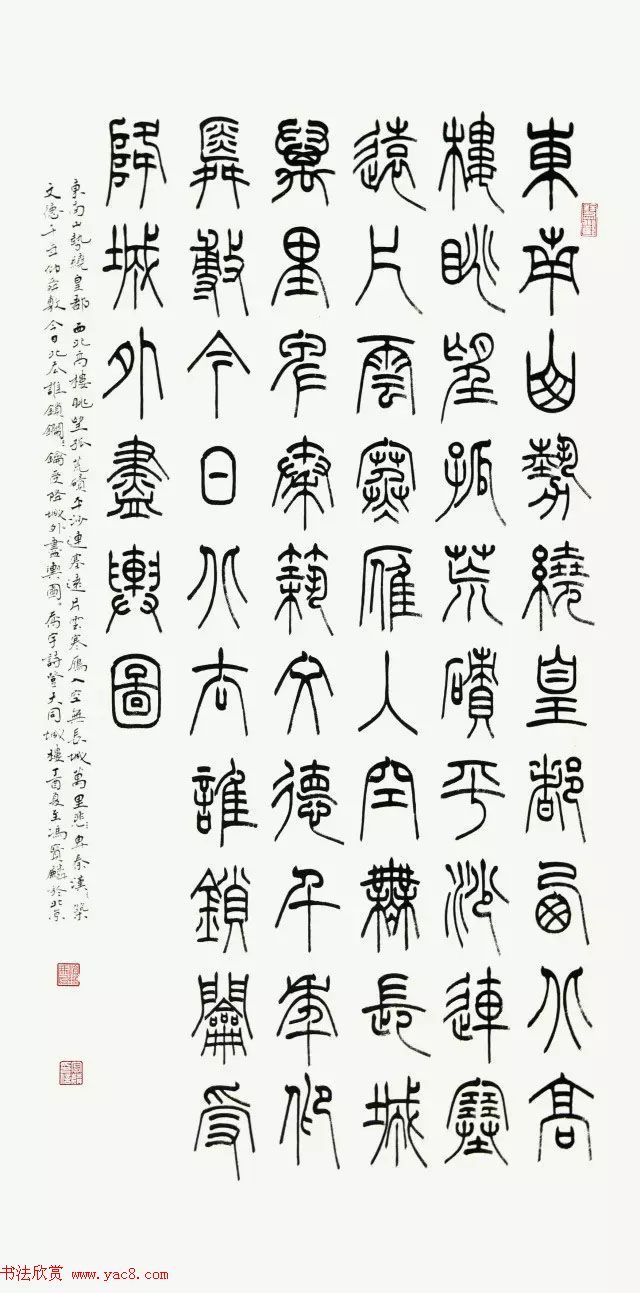 東南山勢繞皇都西北高
樓眺望孤荒磧平沙連塞
遠片雲寒雁入空無長城
萬里卑秦築文德千年仰
舜敷今日北誰鎖鑰受
降城外盡輿圖
東南山勢繞皇都西北高樓眺望孤荒磧平沙連塞遠片雲寒雁入空無長城萬里悲卑秦漢築
文德千年仰舜敷今日北誰鎖鑰受降城外畫輿圖詩登大同城樓丁酉夏至馮寶麟於北京
书法欣赏 www.yac8.com